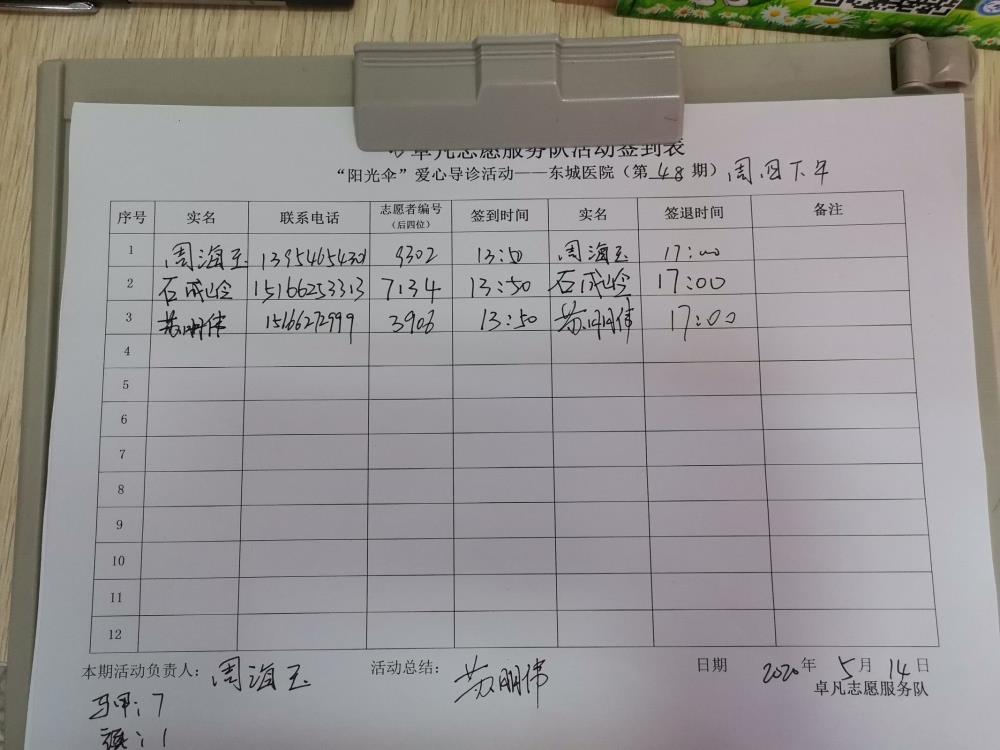 卓凡志愿服务队活动签到表
“阳光伞”爱心导诊活动——东城医院（第 48 期）周四下午
序号 实名 联系电话 志愿者编号（后四位） 签到时间 实名 签退时间 备注
1 周海玉 9302 13:50 周海玉 17:00
2 15166253313 7134 13:50 17:00
3 苏明伟 15166272999 3906 13:50 苏明伟 17:00
4
5
6
7
8
9
10
11
12
本期活动负责人：周海玉 活动总结：苏明伟 日期 2020年 5月 14日
卓凡志愿服务队
马甲：7
：1